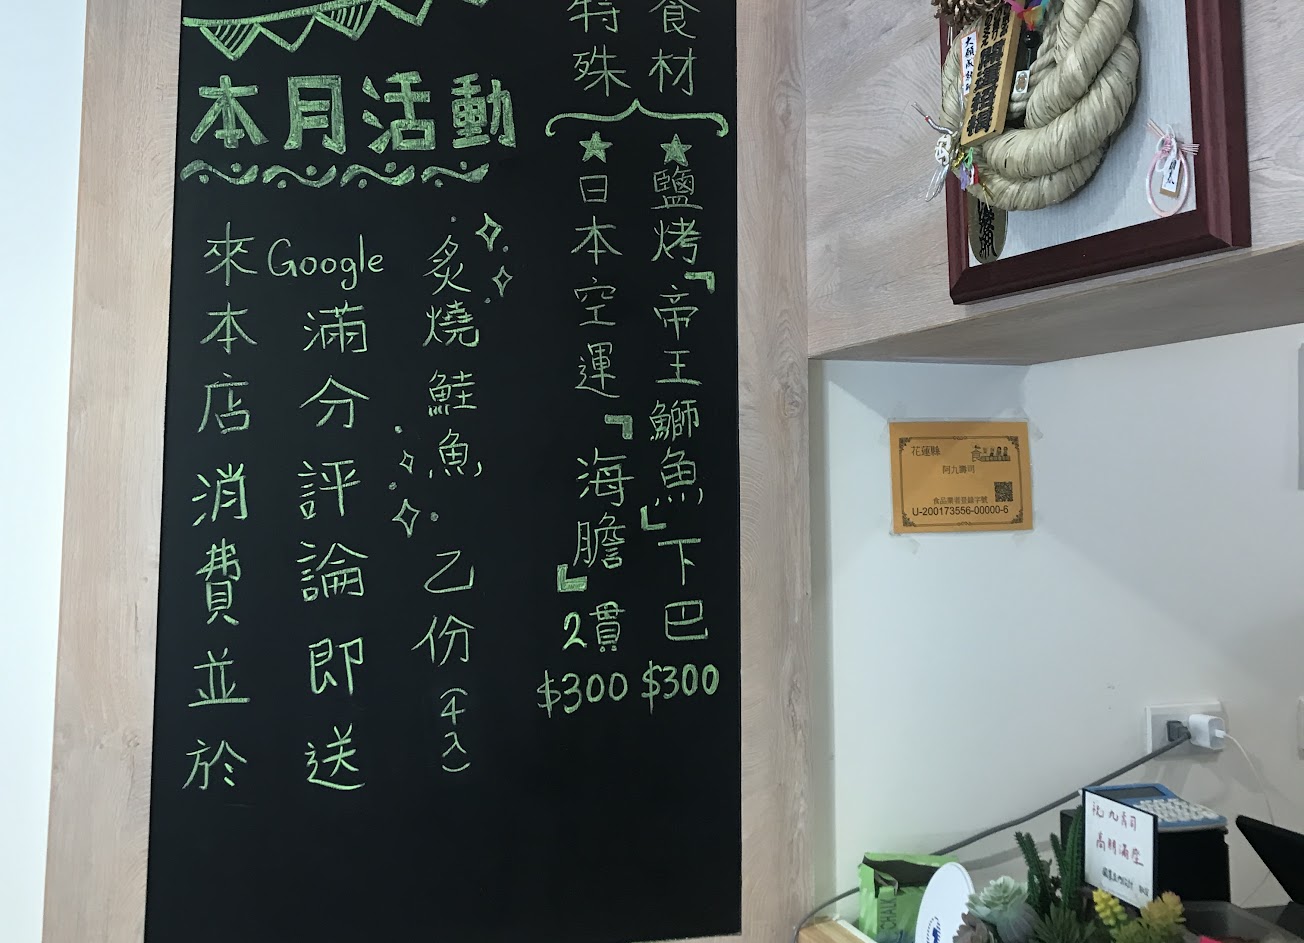 本月活動
來本店消費並於
Google滿分評論即送
炙燒鮭魚乙份(4入)
特殊
食材
★鹽烤「帝王鰤魚」下巴
$300
★日本空運「海膽」2貫
$300
花蓮縣
阿九壽司
食品業者登錄字號
U-200173556-00000-6
九壽司
高朋滿座
CHALK